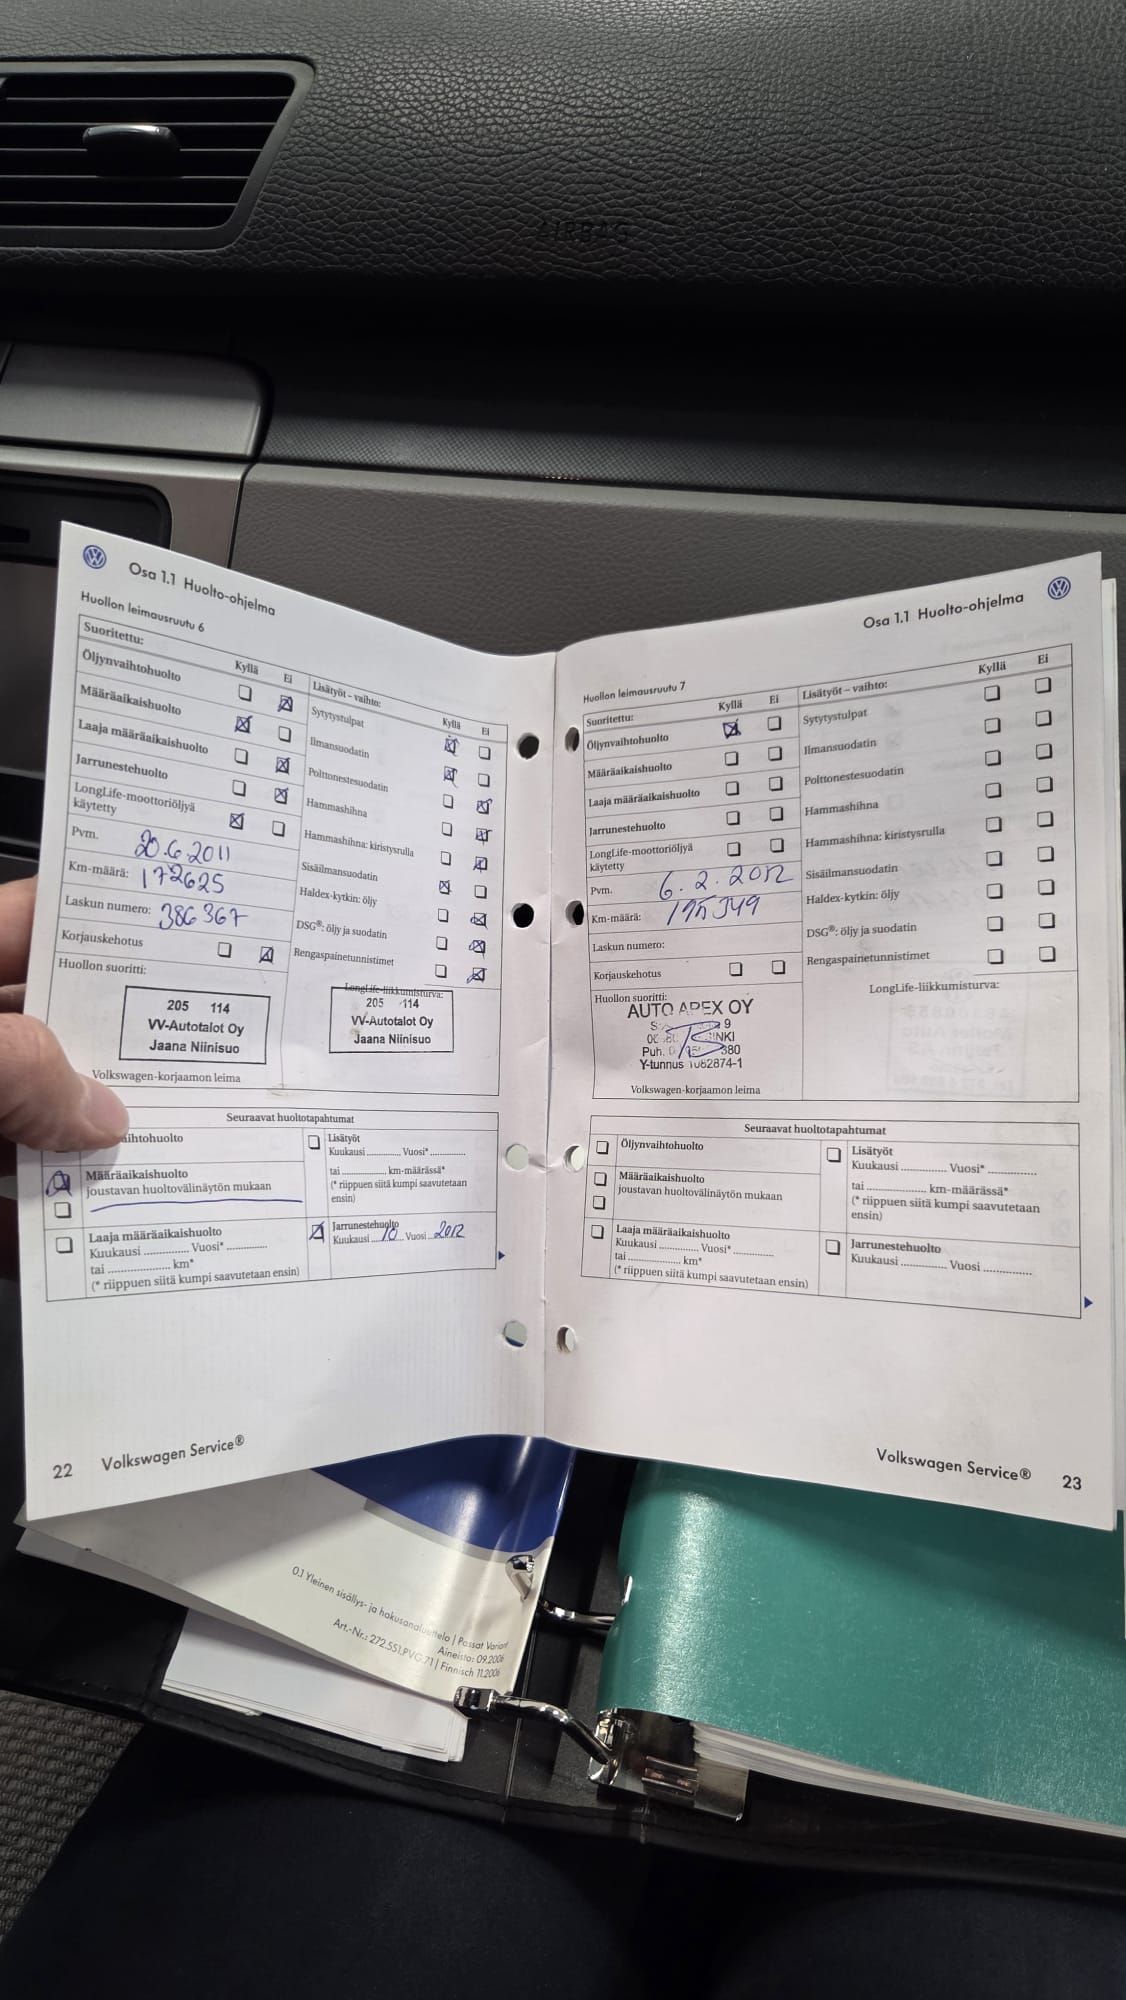 AIRBAG
Osa 1.1 Huolto-ohjelma
Huollon leimausruutu 6
Suoritettu:
Kyllä
Ei
Öljynvaihtohuolto
Määräaikaishuolto
Laaja määräaikaishuolto
Jarrunestehuolto
LongLife-moottoriöljyä
käytetty
Pvm. 20.6.2011
Km-määrä: 172625
Laskun numero: 386367
Korjauskehotus
Huollon suoritti:
205 114
VV-Autotalot Oy
Jaana Niinisuo
Volkswagen-korjaamon leima
Lisätyöt – vaihto:
Kyllä
Ei
Sytytystulpat
Ilmansuodatin
Polttonestesuodatin
Hammashihna
Hammashihna: kiristysrulla
Sisäilmansuodatin
Haldex-kytkin: öljy
DSG®: öljy ja suodatin
Rengaspainetunnistimet
LongLife-liikkumisturva:
205 114
VV-Autotalot Oy
Jaana Niinisuo
Seuraavat huoltotapahtumat
aihtohuolto
Määräaikaishuolto
joustavan huoltovälinäytön mukaan
Laaja määräaikaishuolto
Kuukausi .............. Vuosi* ..............
tai ..................... km*
(* riippuen siitä kumpi saavutetaan ensin)
Lisätyöt
Kuukausi ............ Vuosi* ............
tai ............... km-määrässä*
(* riippuen siitä kumpi saavutetaan
ensin)
Jarrunestehuolto
Kuukausi 10 Vuosi 2012
22 Volkswagen Service®
Osa 1.1 Huolto-ohjelma
Huollon leimausruutu 7
Suoritettu:
Kyllä
Ei
Öljynvaihtohuolto
Määräaikaishuolto
Laaja määräaikaishuolto
Jarrunestehuolto
LongLife-moottoriöljyä
käytetty
Pvm. 6.2.2012
Km-määrä:
Laskun numero:
Korjauskehotus
Huollon suoritti:
AUTO APEX OY
9
INKI
Puh. 380
Y-tunnus 1062874-1
Volkswagen-korjaamon leima
Lisätyöt – vaihto:
Kyllä
Ei
Sytytystulpat
Ilmansuodatin
Polttonestesuodatin
Hammashihna
Hammashihna: kiristysrulla
Sisäilmansuodatin
Haldex-kytkin: öljy
DSG®: öljy ja suodatin
Rengaspainetunnistimet
LongLife-liikkumisturva:
Seuraavat huoltotapahtumat
Öljynvaihtohuolto
Määräaikaishuolto
joustavan huoltovälinäytön mukaan
Laaja määräaikaishuolto
Kuukausi .............. Vuosi* ..............
tai ..................... km*
(* riippuen siitä kumpi saavutetaan ensin)
Lisätyöt
Kuukausi .............. Vuosi* ..............
tai .................. km-määrässä*
(* riippuen siitä kumpi saavutetaan
ensin)
Jarrunestehuolto
Kuukausi .............. Vuosi ..............
Volkswagen Service® 23
0.1 Yleinen sisällys- ja hakusanaluettelo | Passat Variant
Aineisto: 09.2006
Art.-Nr.: 272.551.PVG.71 | Finnisch 11.2006